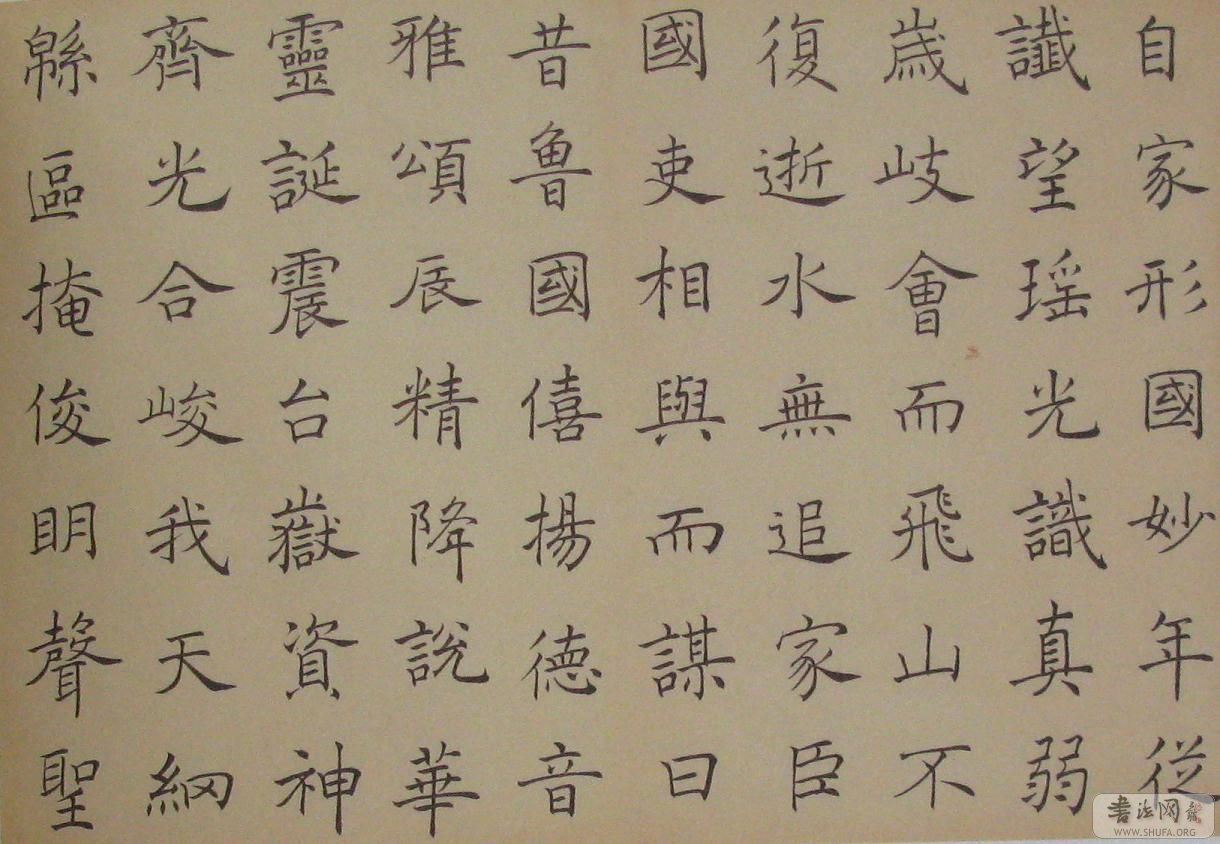 自家形國妙年從
讖望瑶光識真弱
歲岐會而飛山不
復逝水無追家臣
國吏相與而謀曰
昔魯國僖揚德音
雅頌辰精降說華
靈誕震台嶽資神
齊光合峻我天網
緜區掩俊明聲聖
書法网
WWW.SHUFA.ORG